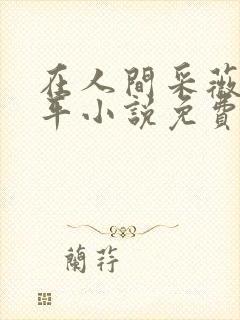 在人間采薇
年小説免費
蘭荇